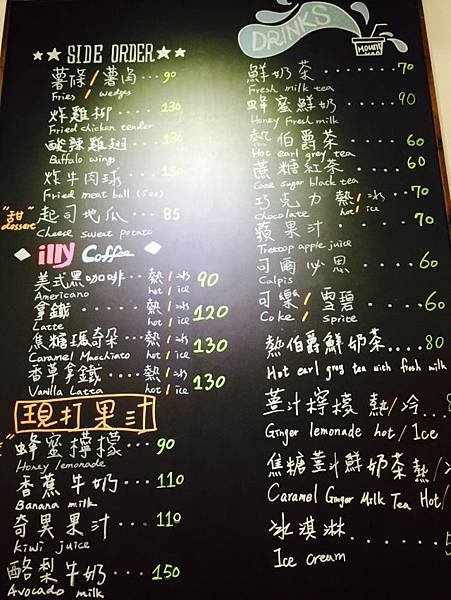 SIDE ORDER
薯條/薯角...90
Fries / wedges
炸雞柳....130
Fried chicken tender
酸辣雞翅...130
Buffalo wings
炸牛肉球...150
Fried meat ball (5oz)
"甜"
dessert
起司地瓜...85
Cheese sweet potato
illy Coffee
美式黑咖啡..熱/冰 90
Americano hot / ice
拿鐵....熱/冰 120
Latte hot / ice
焦糖瑪奇朵..熱/冰 130
Caramel Macchiato hot / ice
香草拿鐵...熱/冰 130
Vanilla Latta hot / ice
現打果汁
蜂蜜檸檬... 90
Honey lemonade
香蕉牛奶... 110
Banana milk
奇異果汁.... 110
kiwi juice
酪梨牛奶.... 150
Avocado milk
DRINKS
鮮奶茶.......70
Fresh milk tea
蜂蜜鮮奶....90
Honey Fresh milk
熱伯爵茶.....60
Hot earl grey tea
蔗糖紅茶....60
Cane sugar black tea
巧克力 熱/冰..70
chocolate hot / ice
蘋果汁......70
Treetop apple juice
可爾必思.....60
Calpis
可樂/雪碧....60
Coke / sprite
熱伯爵鮮奶茶...80
Hot earl grey tea with fresh milk
薑汁檸檬 熱/冷
Ginger lemonade hot/Ice
焦糖薑汁鮮奶茶 熱/
Caramel Ginger Milk Tea Hot/
冰淇淋.......
Ice cream